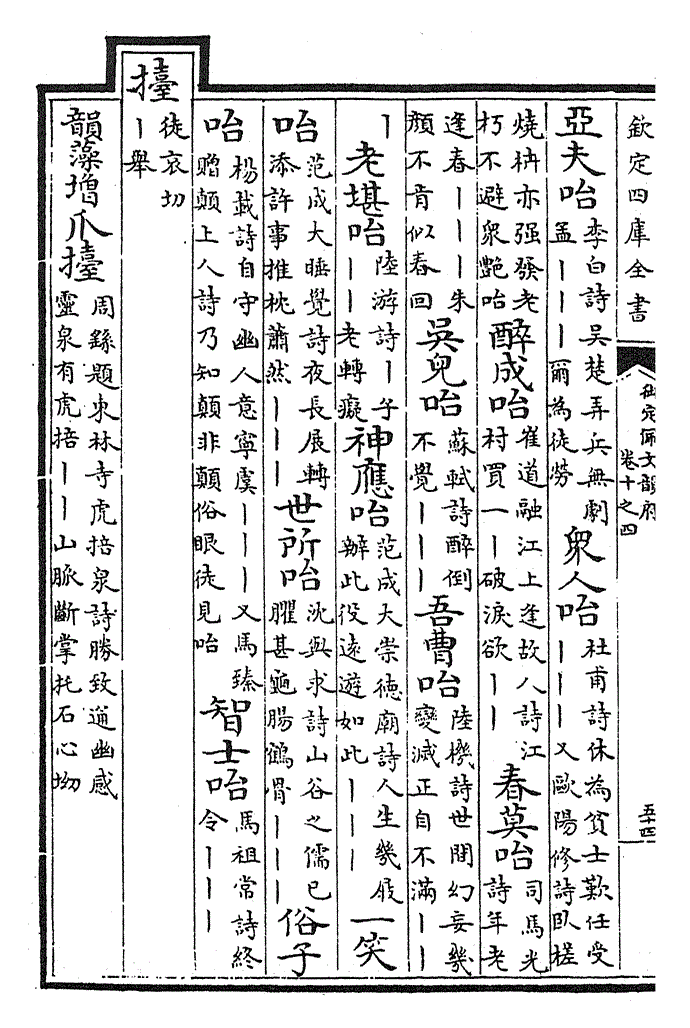 欽定四庫全書
御定佩文韻府
卷十之四
五十四
亞夫咍李白詩吳楚弄兵無劇孟丨丨丨爾為徒勞衆人咍杜甫詩休為貧士歎任受丨丨丨又歐陽修詩臥槎
燒枿亦强發老朽不避衆艷咍醉成咍崔道融江上逢故人詩江村買一丨破淚欲丨丨春莫咍司馬光詩年老
逢春丨丨丨朱顔不肯似春回吳兒咍蘇軾詩醉倒不覺丨丨丨吾曹咍陸機詩世間幻妄幾變滅正自不滿丨丨
丨老堪咍陸游詩丨子丨丨老轉癡神應咍范成大崇德廟詩人生幾屐辦此役遠遊如此丨丨丨一笑
咍范成大睡覺詩夜長展轉添許事推枕蕭然丨丨丨世所咍沈與求詩山谷之儒已臞甚龜腸鶴骨丨丨丨俗子
咍楊載詩自守幽人意寧虞丨丨丨又馬臻贈顛上人詩乃知顛非顛俗眼徒見咍智士咍馬祖常詩終令丨丨丨
擡徒哀切丨舉
韻藻增爪擡周繇題東林寺虎掊泉詩勝致通幽感靈泉有虎掊丨丨山脈斷掌托石心坳